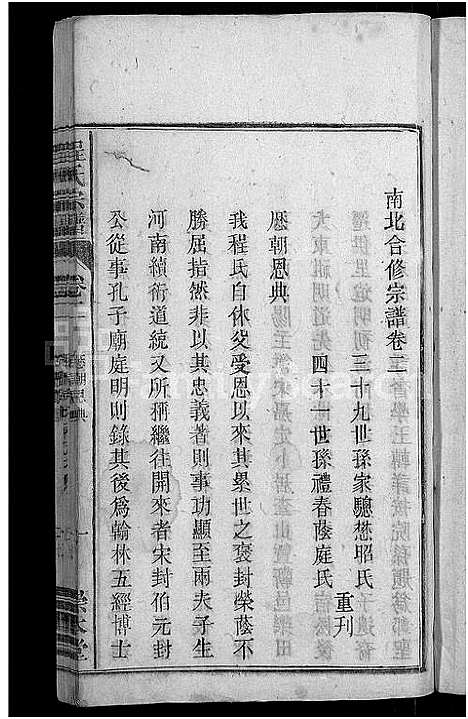 南北合修宗譜卷二
三十九世孫家驄懋昭氏
四十一世孫禮春蔭庭氏
重刊
歷朝恩典
我程氏自休父受恩以來其累世之褒封榮蔭不
勝屈指然非以其忠義著則事功顯至兩夫子生
河南續衍道統又所稱繼往開來者宋封伯元封
公從事孔子廟庭明則錄其後為翰林五經博士
程氏宗譜
卷二
歷朝恩典
一